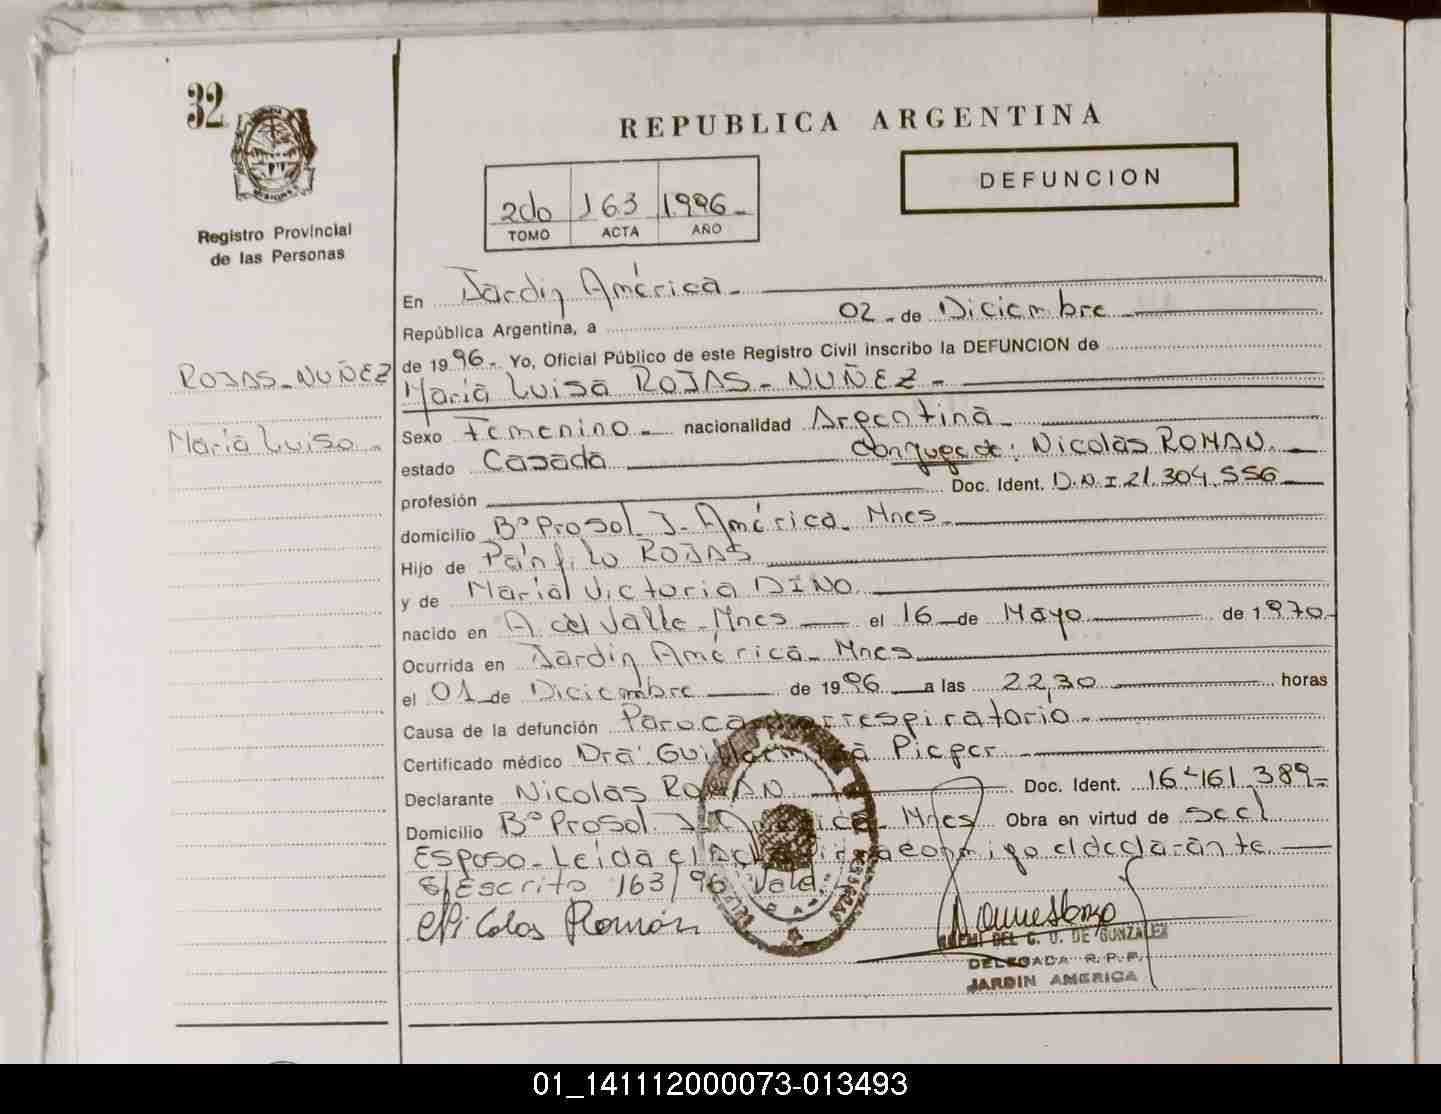 32
REPUBLICA ARGENTINA
DEFUNCION
2do 163 1996-
TOMO ACTA AÑO
Registro Provincial
de las Personas
ROJAS-NUÑEZ
Maria Luisa
En Jardin América-
República Argentina, a 02- de Diciembre
de 1996- Yo, Oficial Público de este Registro Civil inscribo la DEFUNCION de
Maria Luisa ROJAS-NUÑEZ-
Sexo Femenino- nacionalidad Argentina-
estado Casada Conyuge de: Nicolás ROMAN.
profesión Doc. Ident. D.N.I.21.304.556
domicilio B° Prosol J. América- Mnes-
Hijo de Pánfilo ROJAS
y de María Victoria DINO
nacido en A. del Valle-Mnes el 16 de Mayo de 1970-
Ocurrida en Jardin América- Mnes
el 01 de Diciembre de 1996 a las 22,30 horas
Causa de la defunción Paro cardiorrespiratorio-
Certificado médico Dra: Guillermina Pieper
Declarante Nicolás ROMAN Doc. Ident. 16.161.389-
Domicilio B° Prosol J. América- Mnes Obra en virtud de ser el
Esposo-Leida el Acta firma conmigo el declarante
S/Escrito 163/96 Vale
Nicolas Román
DEL C. U. DE GONZALEZ
DELEGADA R.P.P.
JARDIN AMERICA
01_141112000073-013493